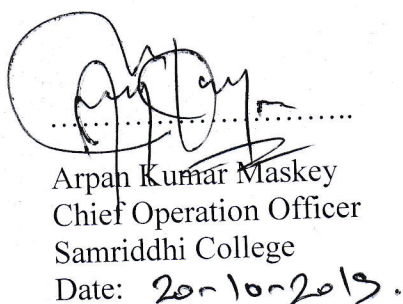 Arpan Kumar Maskey
Chief Operation Officer
Samriddhi College
Date: 20-10-2019.